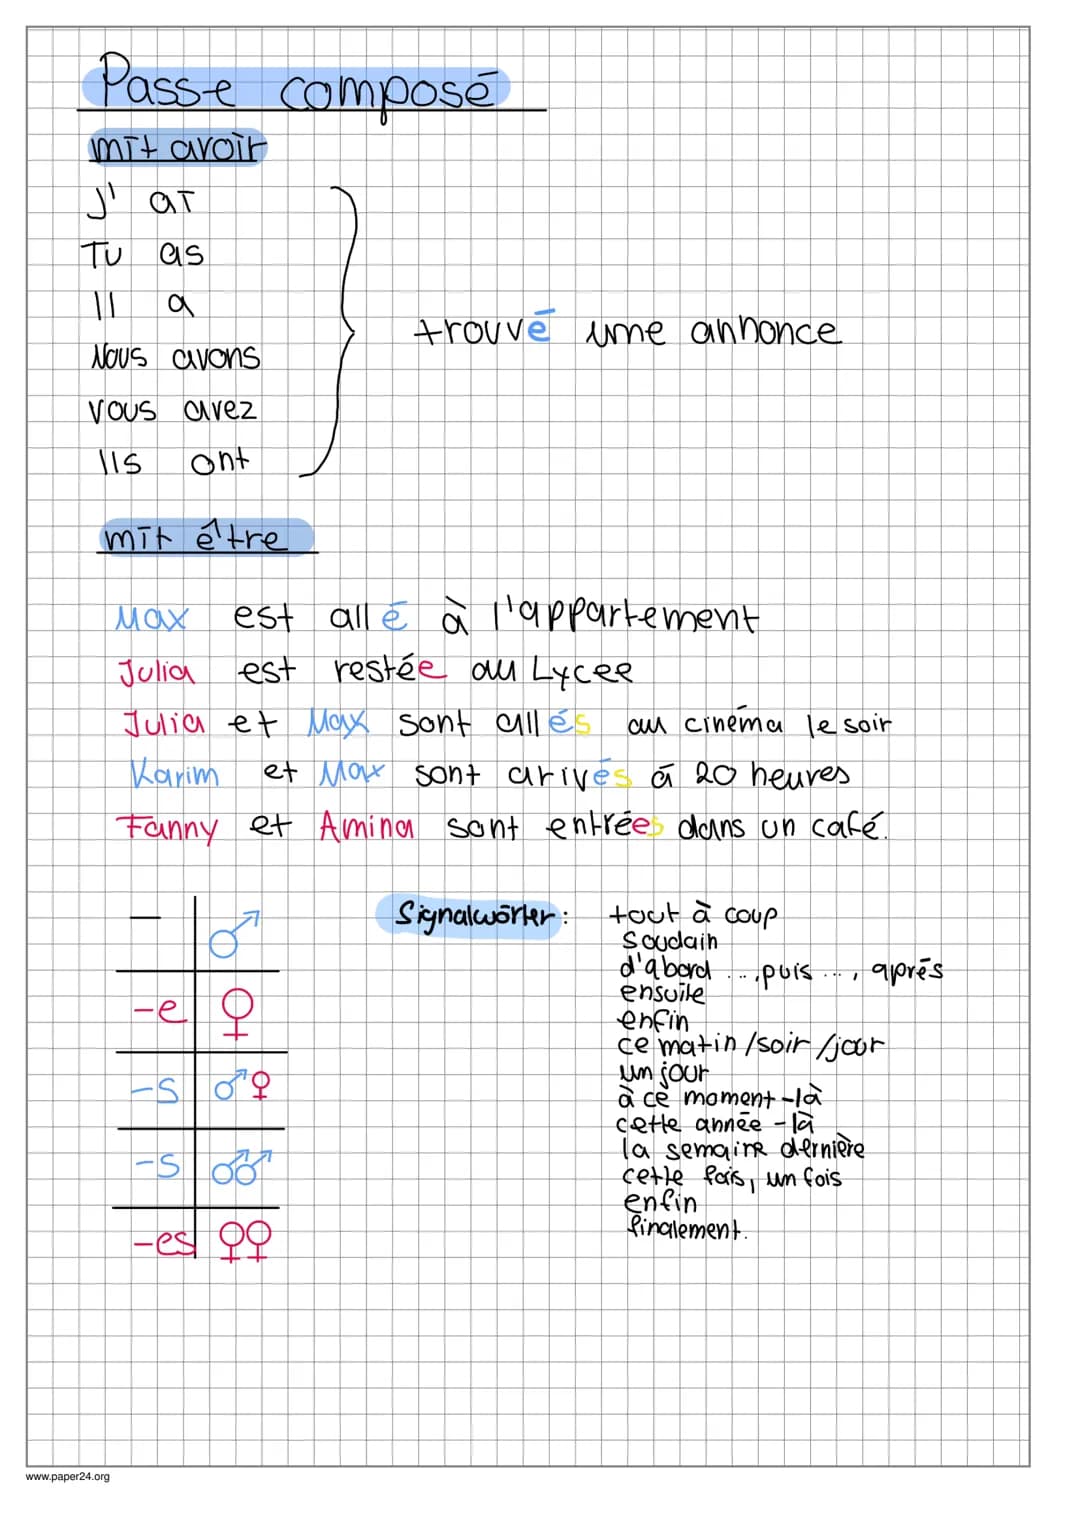 Passe composé
mit avoir
J' ai
Tu as
Il a
Nous avons
trouvé une annonce
vous avez
Ils ont
mit être
Max est allé à l'appartement
Julia est restée au Lycee
Julia et Max sont allés au cinéma le soir
Karim et Max sont arivés á 20 heures
Fanny et Amina sont entrées dans un café.
Signalwörter: tout à coup
Soudain
d'abord ..., puis ..., aprés
ensuite
enfin
ce matin/soir/jour
un jour
à ce moment-là
cette année-là
la semaine dernière
cette fois, un fois
enfin
finalement.
–
-e
-s
-s
-es
www.paper24.org